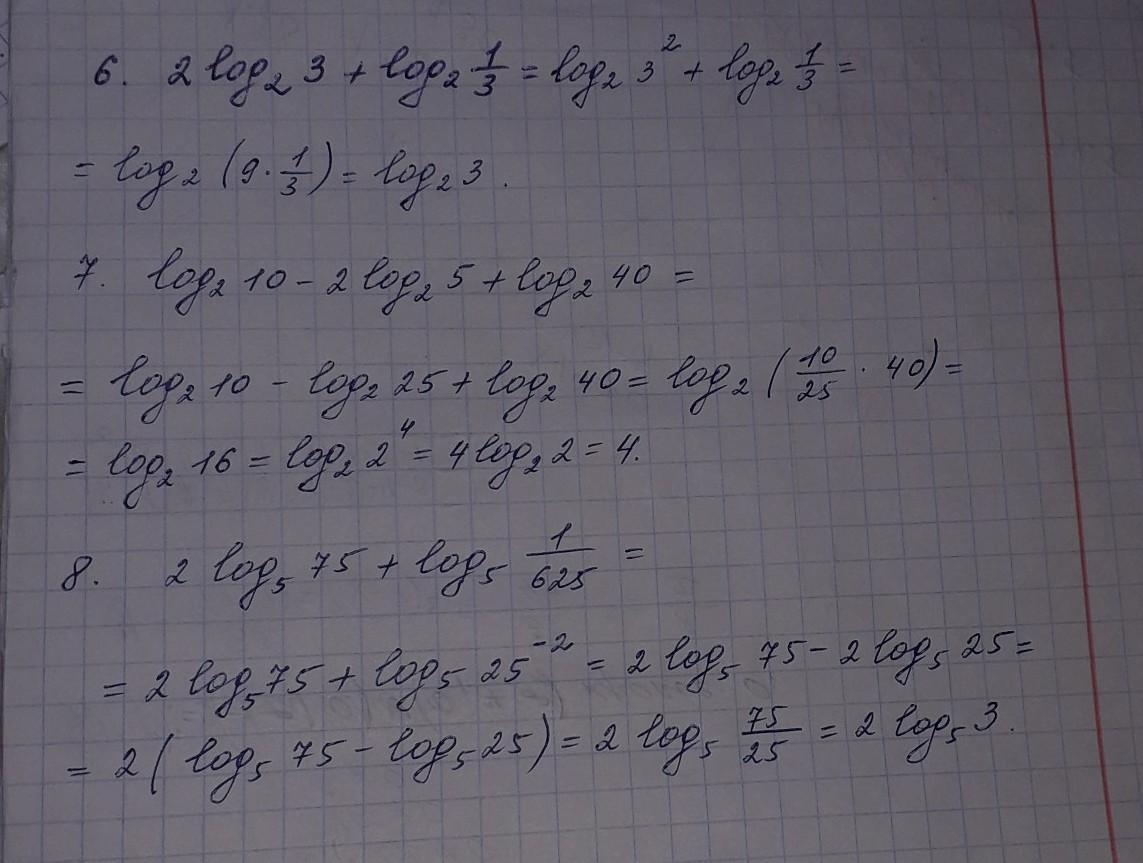 6. 2 log₂ 3 + log₂ 1/3 = log₂ 3² + log₂ 1/3 =
= log₂ (9 · 1/3) = log₂ 3.
7. log₂ 10 - 2 log₂ 5 + log₂ 40 =
= log₂ 10 - log₂ 25 + log₂ 40 = log₂ (10/25 · 40) =
= log₂ 16 = log₂ 2⁴ = 4 log₂ 2 = 4.
8. 2 log₅ 75 + log₅ 1/625 =
= 2 log₅ 75 + log₅ 25⁻² = 2 log₅ 75 - 2 log₅ 25 =
= 2 ( log₅ 75 - log₅ 25 ) = 2 log₅ 75/25 = 2 log₅ 3.